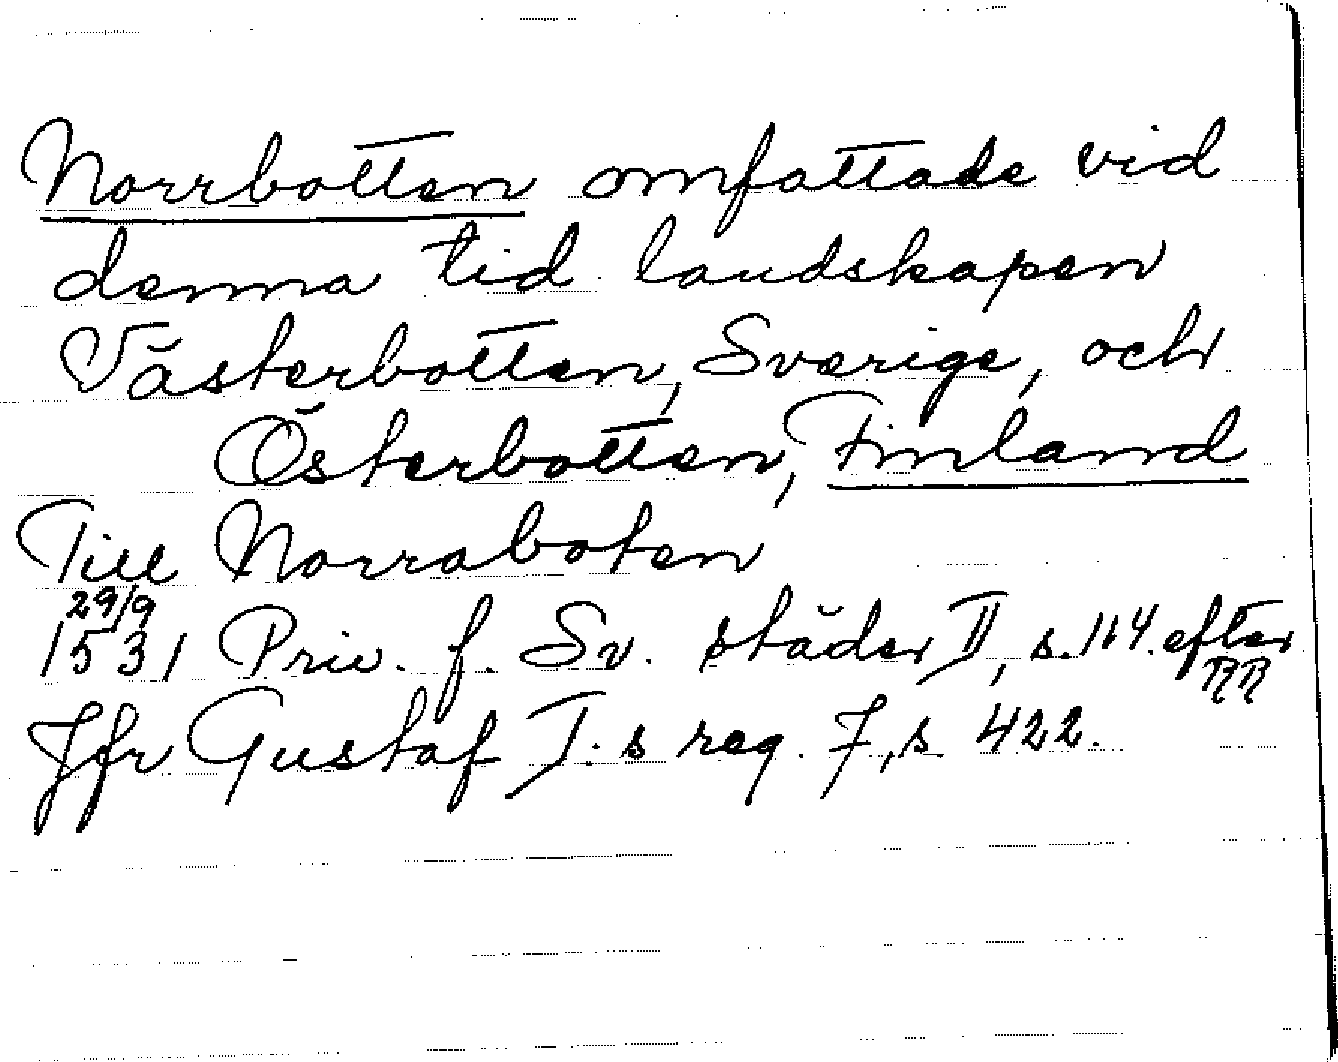 Norrbotten omfattade vid
denna tid landskapen
Västerbotten, Sverige, och
Österbotten, Finland
Till Norraboten
29/9
1531 Priv. f. Sv. städer II, s. 164. efter
RR
Jfr Gustaf I:s reg. 7, s 422.